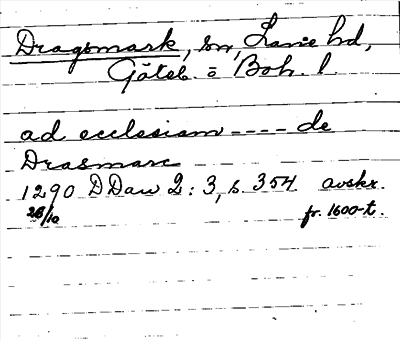 Dragsmark, sn, Lane hd,
Göteb. o Boh. l.
ad ecclesiam ---- de
Drasmarc
1290 DDan 2:3, s. 354 avskr.
26/10 fr. 1600-t.